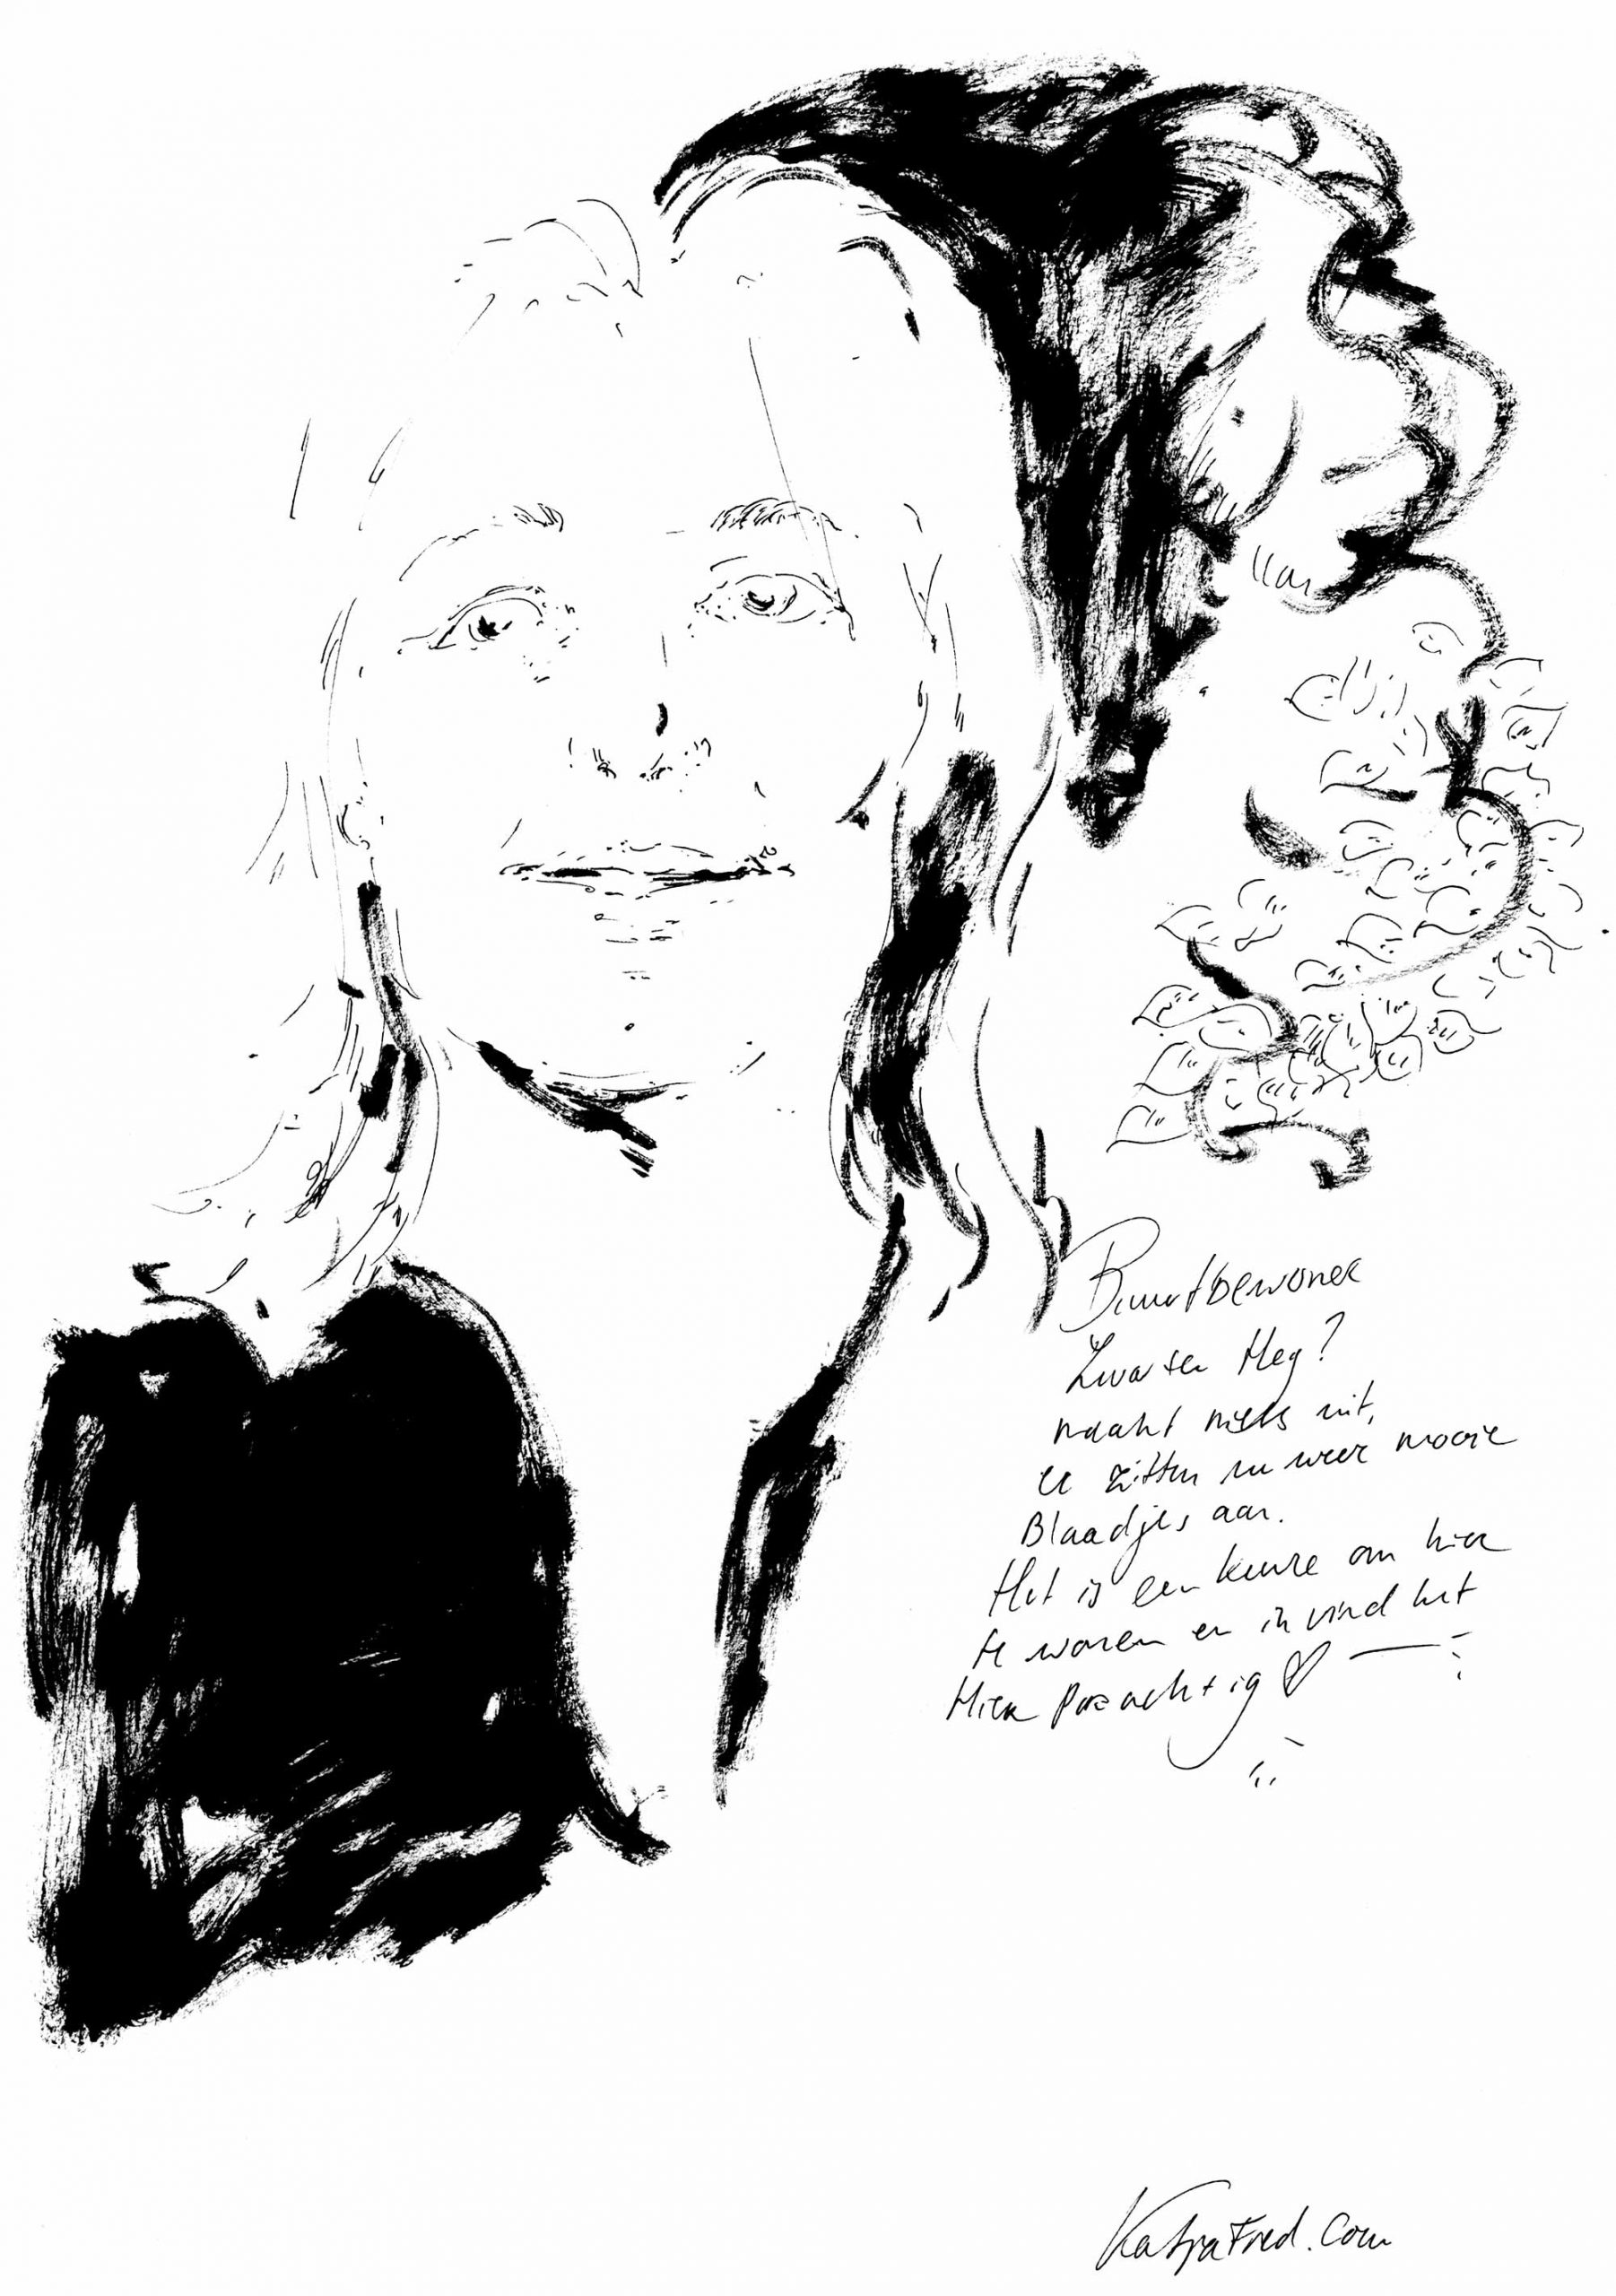 Buurtbewoner
Zwarte Heg?
maakt niets uit,
er zitten nu weer mooie
Blaadjes aan.
Het is een keuze om hier
te wonen en ik vind het
Hier Prachtig
KatjaFred.com